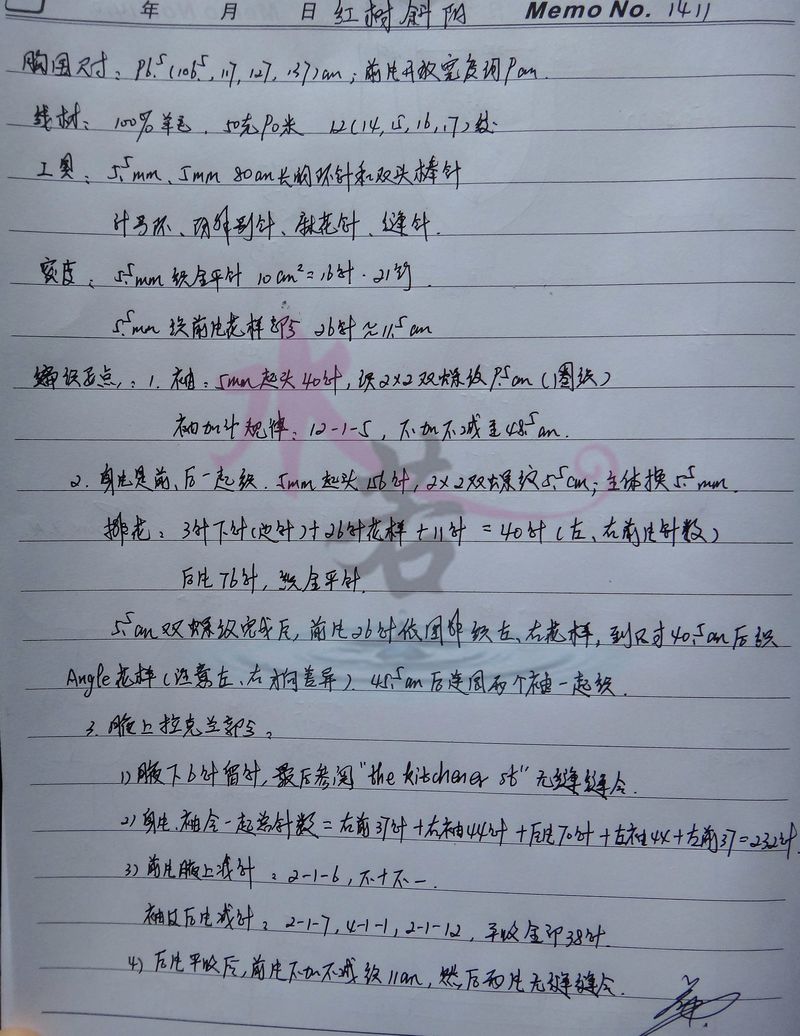 年 月 日 红树斜阳 Memo No. 1411
胸围尺寸：96.5(106.5, 117, 127, 137)cm；前片开放宽度约9cm.
线材：100%羊毛，50克90米 12(14, 15, 16, 17)绞
工具：5.5mm、5mm 80cm长的环针和双头棒针
计号环、阴绊别针、麻花针、缝针.
密度：5.5mm织全平针 10cm²=16针·21行.
5.5mm织前片花样部分 26针≈11.5cm
编织要点：1. 袖：5mm起头40针，织2×2双螺纹9.5cm（圈织）
袖加针规律：12-1-5，不加不减至48.5cm.
2. 身片是前、后一起织. 5mm起头156针，2×2双螺纹5.5cm；主体换5.5mm.
排花：3针下针（边针）+26针花样+11针=40针（左、右前片针数）
后片76针，织全平针.
5.5cm双螺纹完成后，前片26针依图解织左、右花样，到尺寸40.5cm后织
Angle花样（注意左、右方向差异）. 45.5cm后连同两个袖一起织.
3. 腋上拉克兰部分：
1) 腋下6针留针，最后参阅"the kitchener st"无缝缝合.
2) 身片、袖合一起总针数=右前37针+右袖44针+后片70针+左袖44+左前37=232针
3) 前片腋上减针：2-1-6，不十不一.
袖及后片减针：2-1-7, 4-1-1, 2-1-12, 平收全部38针.
4) 后片平收后，前片不加不减织11cm，然后两片无缝缝合.
水若